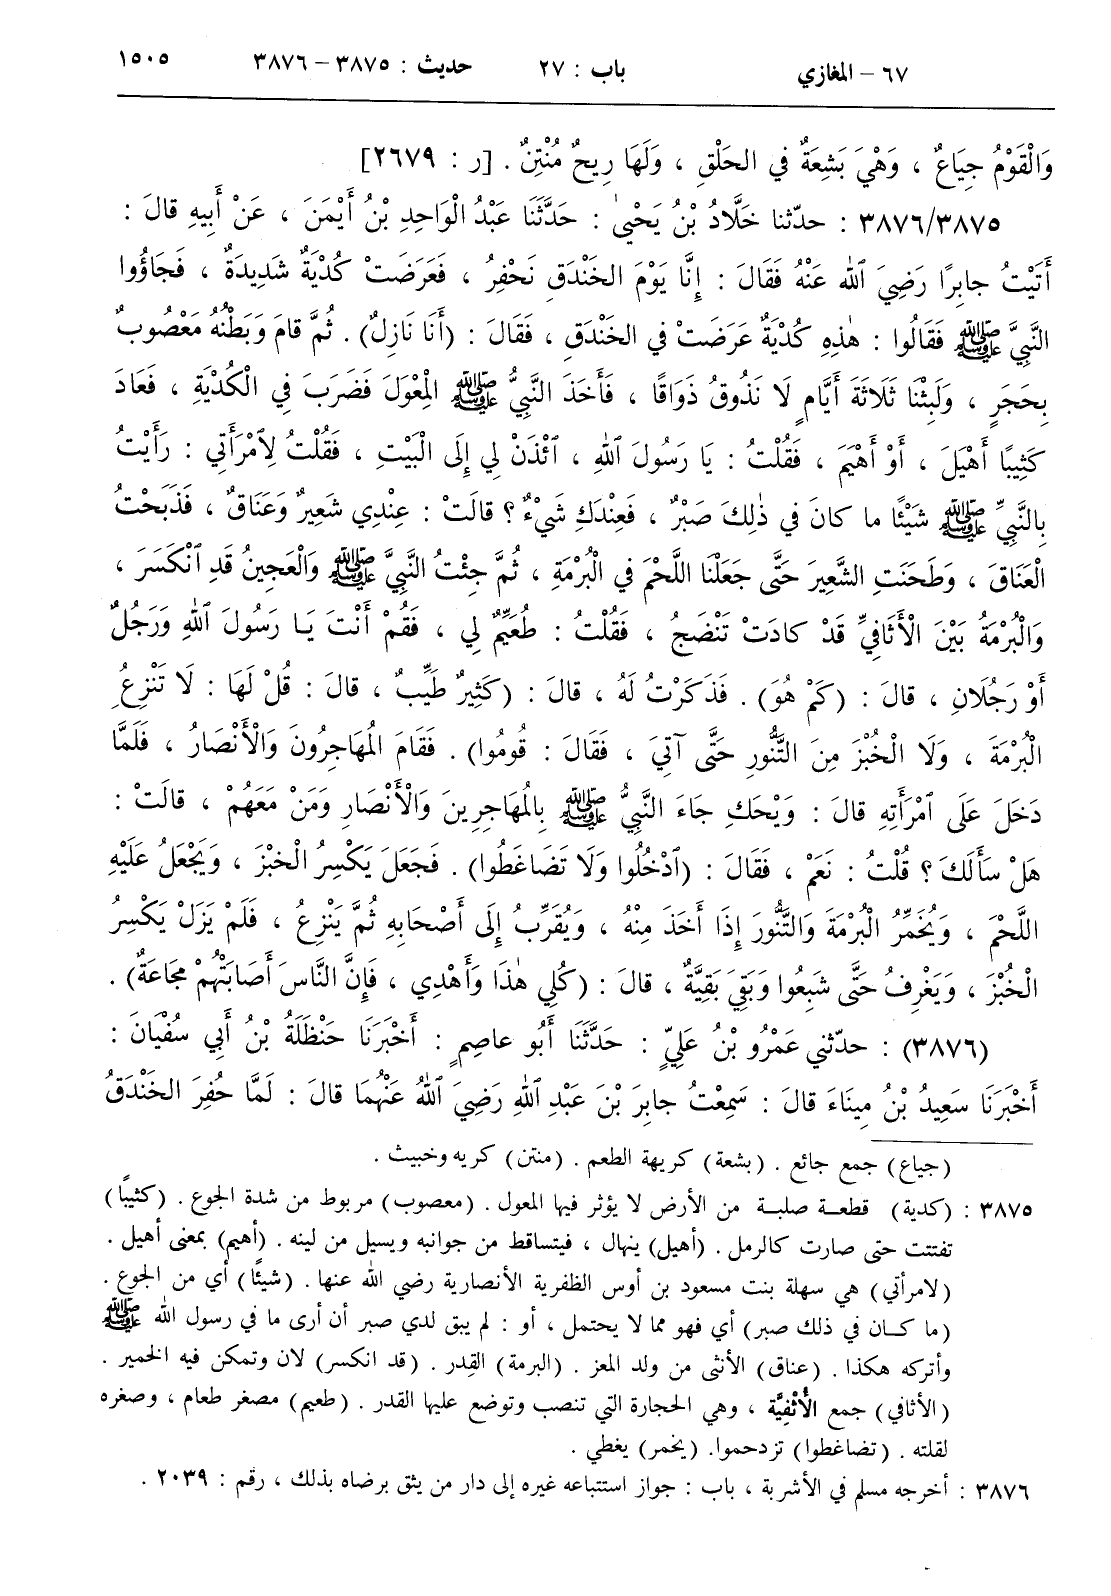 ٦٧ - المغازي باب : ٢٧ حديث : ٣٨٧٥ - ٣٨٧٦ ١٥٠٥
وَالْقَوْمُ جِيَاعٌ ، وَهْيَ بَشِعَةٌ في الحَلْقِ ، وَلَهَا رِيحٌ مُنْتِنٌ . [ر : ٢٦٧٩]
٣٨٧٦/٣٨٧٥ : حدّثنا خَلَّادُ بْنُ يَحْيىٰ : حَدَّثَنَا عَبْدُ الْوَاحِدِ بْنُ أَيْمَنَ ، عَنْ أَبِيهِ قالَ :
أَتَيْتُ جابِرًا رَضِيَ ٱللهُ عَنْهُ فَقَالَ : إِنَّا يَوْمَ الخَنْدَقِ نَحْفِرُ ، فَعَرَضَتْ كُدْيَةٌ شَدِيدَةٌ ، فَجَاؤُوا
النَّبِيَّ ﷺ فَقَالُوا : هٰذِهِ كُدْيَةٌ عَرَضَتْ في الخَنْدَقِ ، فَقَالَ : (أَنَا نَازِلٌ) . ثُمَّ قامَ وَبَطْنُهُ مَعْصُوبٌ
بِحَجَرٍ ، وَلَبِثْنَا ثَلَاثَةَ أَيَّامٍ لَا نَذُوقُ ذَوَاقًا ، فَأَخَذَ النَّبِيُّ ﷺ الْمِعْوَلَ فَضَرَبَ فِي الْكُدْيَةِ ، فَعَادَ
كَثِيبًا أَهْيَلَ ، أَوْ أَهْيَمَ ، فَقُلْتُ : يَا رَسُولَ ٱللهِ ، ٱئْذَنْ لِي إِلَى الْبَيْتِ ، فَقُلْتُ لِٱمْرَأَتِي : رَأَيْتُ
بِالنَّبِيِّ ﷺ شَيْئًا ما كانَ في ذٰلِكَ صَبْرٌ ، فَعِنْدَكِ شَيْءٌ ؟ قالَتْ : عِنْدِي شَعِيرٌ وَعَنَاقٌ ، فَذَبَحْتُ
الْعَنَاقَ ، وَطَحَنَتِ الشَّعِيرَ حَتَّى جَعَلْنَا اللَّحْمَ في الْبُرْمَةِ ، ثُمَّ جِئْتُ النَّبِيَّ ﷺ وَالْعَجِينُ قَدِ ٱنْكَسَرَ ،
وَالْبُرْمَةُ بَيْنَ الْأَثَافِيِّ قَدْ كادَتْ تَنْضَجُ ، فَقُلْتُ : طُعَيِّمٌ لِي ، فَقُمْ أَنْتَ يَا رَسُولَ ٱللهِ وَرَجُلٌ
أَوْ رَجُلَانِ ، قالَ : (كَمْ هُوَ) . فَذَكَرْتُ لَهُ ، قالَ : (كَثِيرٌ طَيِّبٌ ، قالَ : قُلْ لَهَا : لَا تَنْزِعُِ
الْبُرْمَةَ ، وَلَا الْخُبْزَ مِنَ التَّنُّورِ حَتَّى آتِيَ ، فَقَالَ : قُومُوا) . فَقَامَ الْمُهَاجِرُونَ وَالْأَنْصَارُ ، فَلَمَّا
دَخَلَ عَلَى ٱمْرَأَتِهِ قالَ : وَيْحَكِ جَاءَ النَّبِيُّ ﷺ بِالْمُهَاجِرِينَ وَالْأَنْصَارِ وَمَنْ مَعَهُمْ ، قالَتْ :
هَلْ سَأَلَكَ ؟ قُلْتُ : نَعَمْ ، فَقَالَ : (ٱدْخُلُوا وَلَا تَضَاغَطُوا) . فَجَعَلَ يَكْسِرُ الْخُبْزَ ، وَيَجْعَلُ عَلَيْهِ
اللَّحْمَ ، وَيُخَمِّرُ الْبُرْمَةَ وَالتَّنُّورَ إِذَا أَخَذَ مِنْهُ ، وَيُقَرِّبُ إِلَى أَصْحَابِهِ ثُمَّ يَنْزِعُ ، فَلَمْ يَزَلْ يَكْسِرُ
الْخُبْزَ ، وَيَغْرِفُ حَتَّى شَبِعُوا وَبَقِيَ بَقِيَّةٌ ، قالَ : (كُلِي هٰذَا وَأَهْدِي ، فَإِنَّ النَّاسَ أَصَابَتْهُمْ مَجَاعَةٌ) .
(٣٨٧٦) : حدّثني عَمْرُو بْنُ عَلِيٍّ : حَدَّثَنَا أَبُو عاصِمٍ : أَخْبَرَنَا حَنْظَلَةُ بْنُ أَبِي سُفْيَانَ :
أَخْبَرَنَا سَعِيدُ بْنُ مِينَاءَ قالَ : سَمِعْتُ جابِرَ بْنَ عَبْدِ ٱللهِ رَضِيَ ٱللهُ عَنْهُمَا قالَ : لَمَّا حُفِرَ الخَنْدَقُ
(جياع) جمع جائع . (بشعة) كريهة الطعم . (منتن) كريه وخبيث .
٣٨٧٥ : (كدية) قطعة صلبة من الأرض لا يؤثر فيها المعول . (معصوب) مربوط من شدة الجوع . (كثيبًا)
تفتتت حتى صارت كالرمل . (أهيل) ينهال ، فيتساقط من جوانبه ويسيل من لينه . (أهيم) بمعنى أهيل .
(لامرأتي) هي سهلة بنت مسعود بن أوس الظفرية الأنصارية رضي الله عنها . (شيئًا) أي من الجوع .
(ما كان في ذلك صبر) أي فهو مما لا يحتمل ، أو : لم يبق لدي صبر أن أرى ما في رسول الله ﷺ
وأتركه هكذا . (عناق) الأنثى من ولد المعز . (البرمة) القِدر . (قد انكسر) لان وتمكن فيه الخمير .
(الأثافي) جمع الأُثْفِيَّة ، وهي الحجارة التي تنصب وتوضع عليها القدر . (طعيم) مصغر طعام ، وصغره
لقلته . (تضاغطوا) تزدحموا. (يخمر) يغطي .
٣٨٧٦ : أخرجه مسلم في الأشربة ، باب : جواز استتباعه غيره إلى دار من يثق برضاه بذلك ، رقم : ٢٠٣٩ .